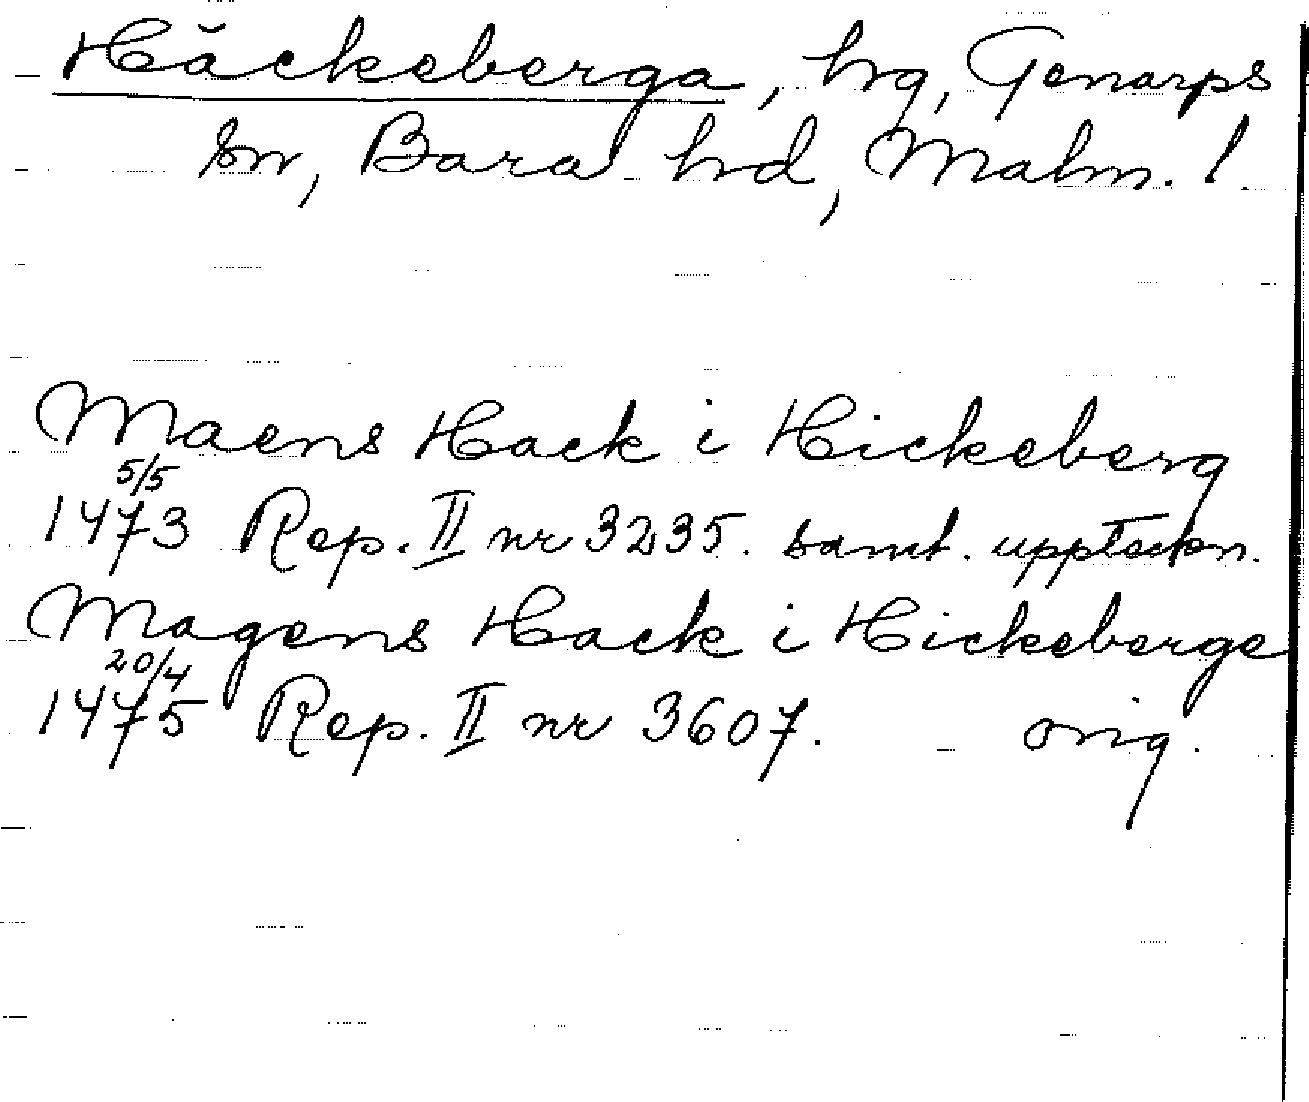 Häckeberga, hrg, Genarps
sn, Bara hd, Malm. l.
Maens Hack i Hickeberg
5/5
1473 Rep. II nr 3235. samt. uppteckn.
Magens Hack i Hickeberge
20/4
1475 Rep. II nr 3607. – orig.